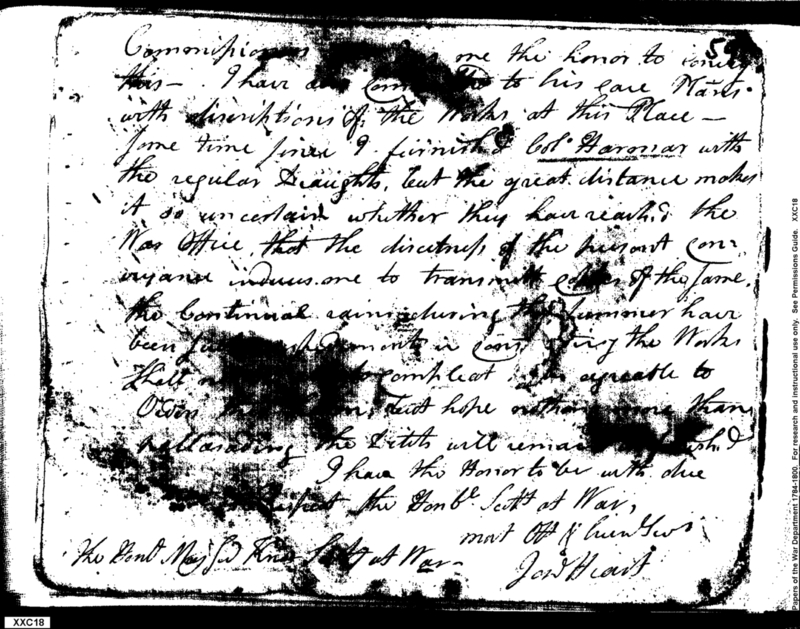 59
Commissioners me the honor to convey
this — I have also to his care Plans
with discriptions of the Works at this Place —
some time since I furnish'd Colo Harmar with
the regular Draughts, but the great distance makes
it so uncertain whether they have reach'd the
War Office, that the directness of the present con-
veyance induces me to transmitt copies of the same,
the Continual rains during the Summer have
been the Works
shall to compleat agreable to
but hope nothing more than
pallasading the Ditch will remain
I have the Honor to be with due
respect the Honble Secty at War,
most Obt & Hum Servt
The Honl Maj Gl Knox Secty at War — Jona Heart
XXC18
Papers of the War Department 1784-1800. For research and instructional use only. See Permissions Guide. XXC18